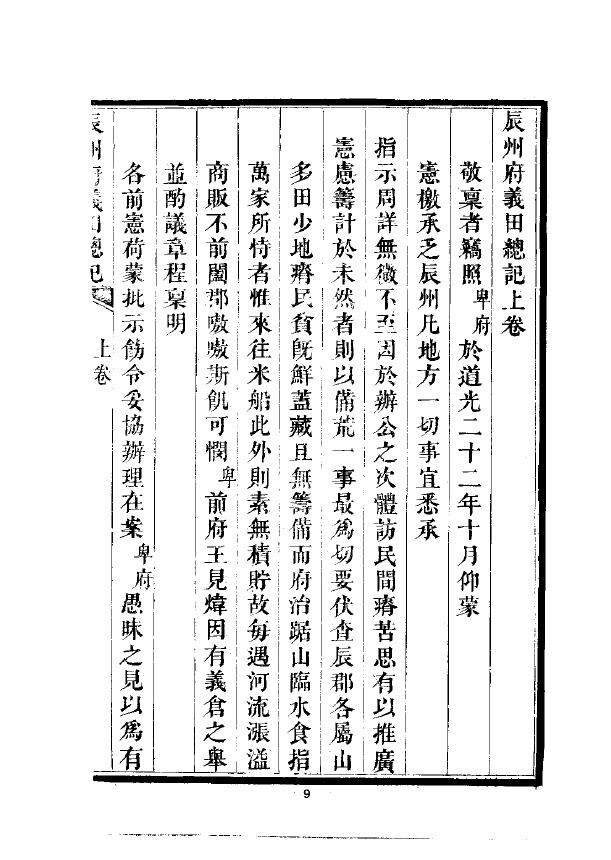 辰州府義田總記上卷
敬稟者竊照卑府於道光二十二年十月仰蒙
憲檄承乏辰州凡地方一切事宜悉承
指示周詳無微不至因於辦公之次體訪民間瘠苦思有以推廣
憲慮籌計於未然者則以備荒一事最爲切要伏查辰郡各屬山
多田少地瘠民貧旣鮮蓋藏且無籌備而府治踞山臨水食指
萬家所恃者惟來往米船此外則素無積貯故每遇河流漲溢
商販不前闔郡嗷嗷斯飢可憫卑前府王見煒因有義倉之舉
並酌議章程稟明
各前憲荷蒙批示飭令妥協辦理在案卑府愚昧之見以爲有
辰州府義田總記 上卷
9